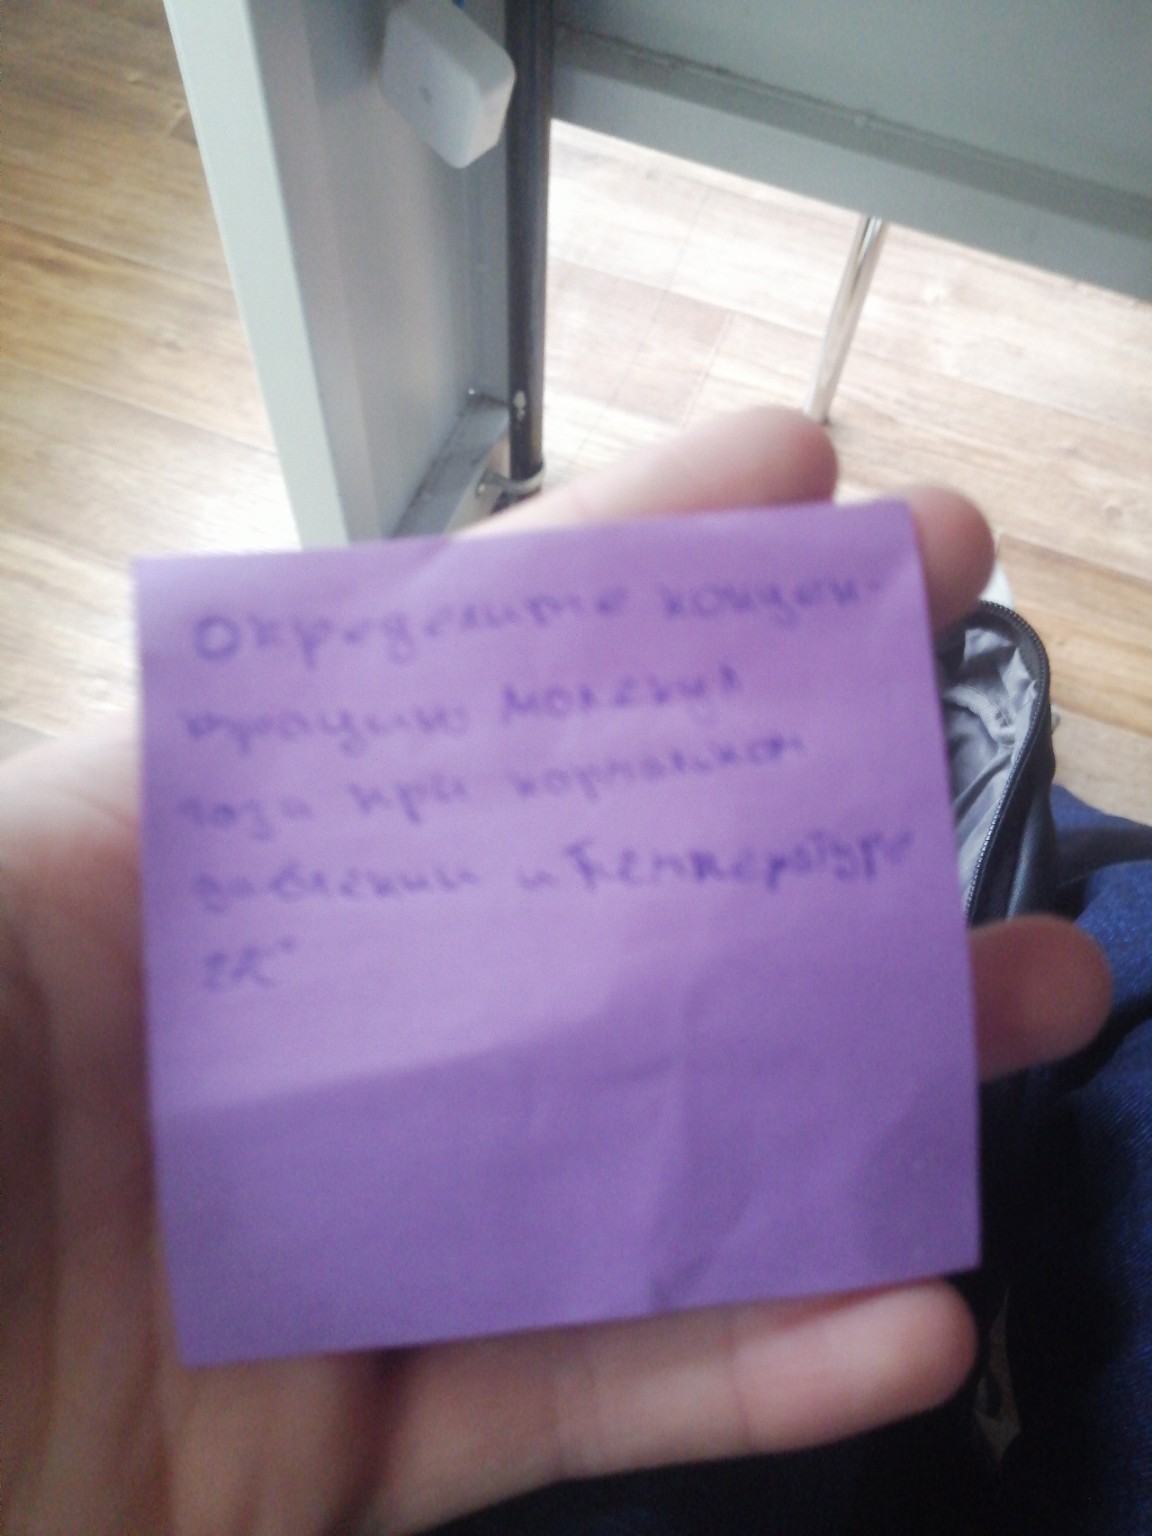 Определите концен-
трацию молекул
газа при нормальном
давлении и температуре
22°